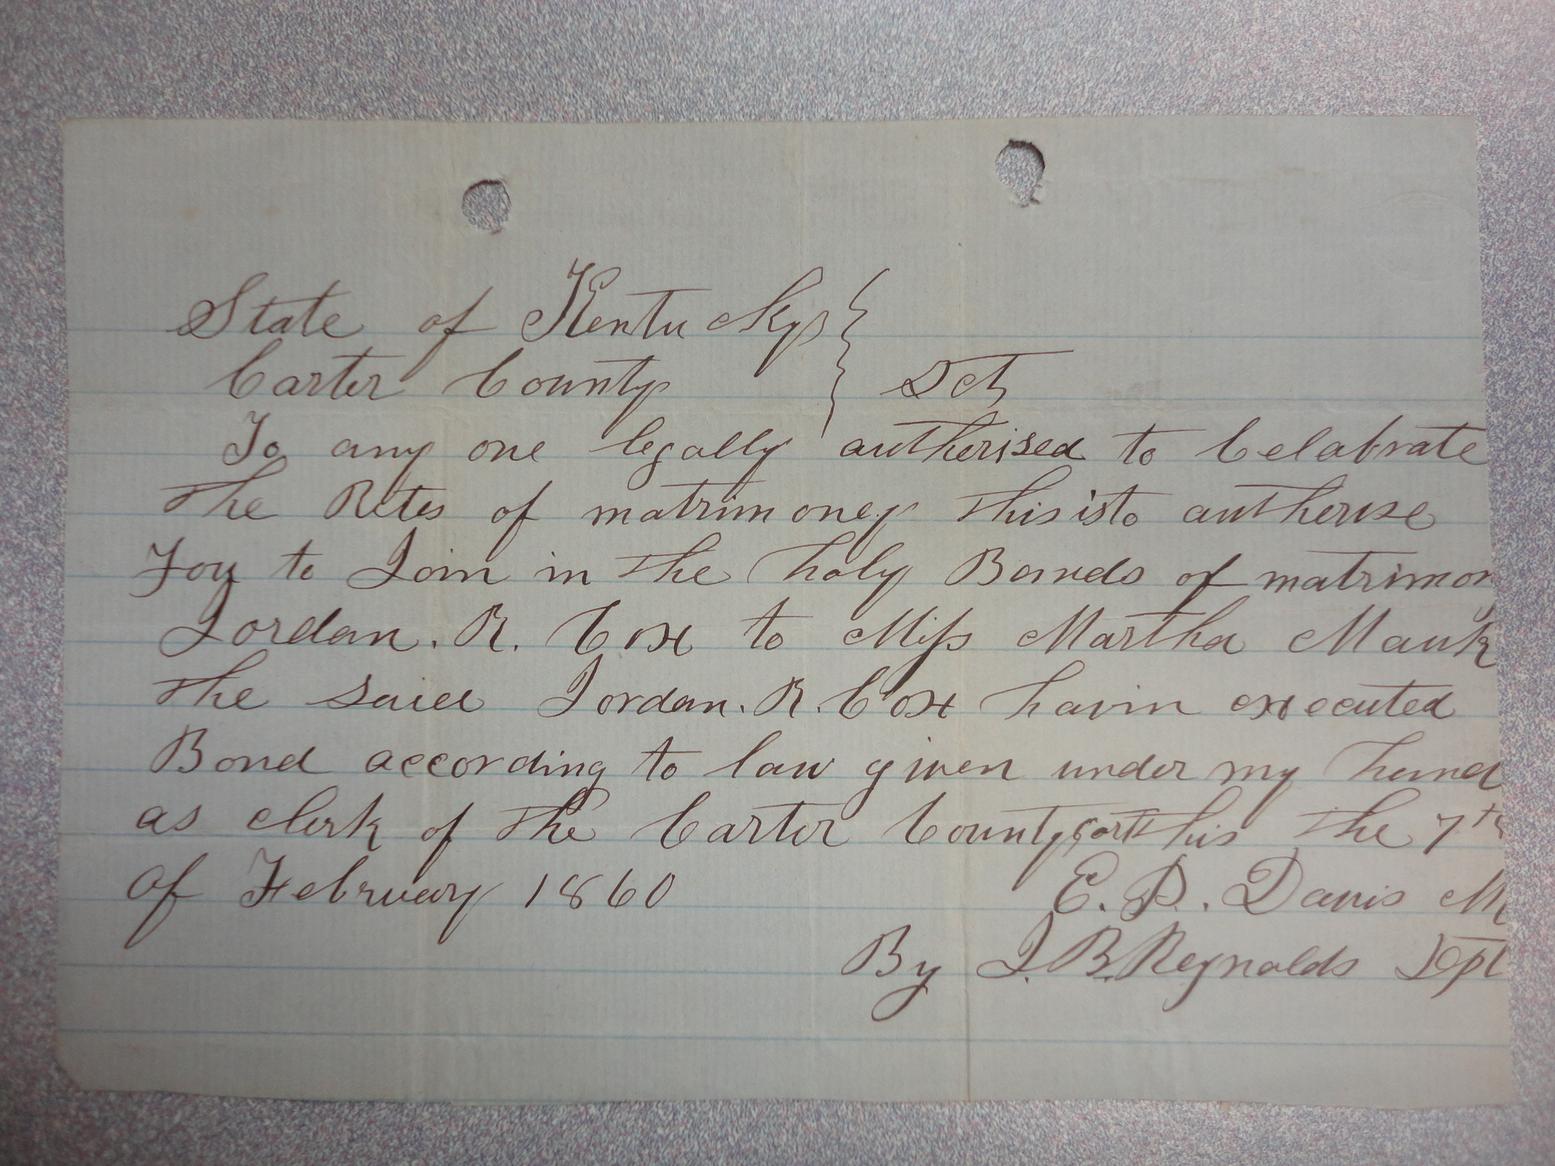 State of Kentucky }
Carter County } Sct
To any one legally autherised to Celabrate
the Rites of matrimoney this is to autherise
You to Join in the holy Bonds of matrimon
Jordan. R. Cox to Miss Martha Mauk
the said Jordan. R. Cox havin executed
Bond according to law given under my hand
as clerk of the Carter County cort this the 7th
of February 1860 E. D. Davis
By J. B. Reynolds Dpt